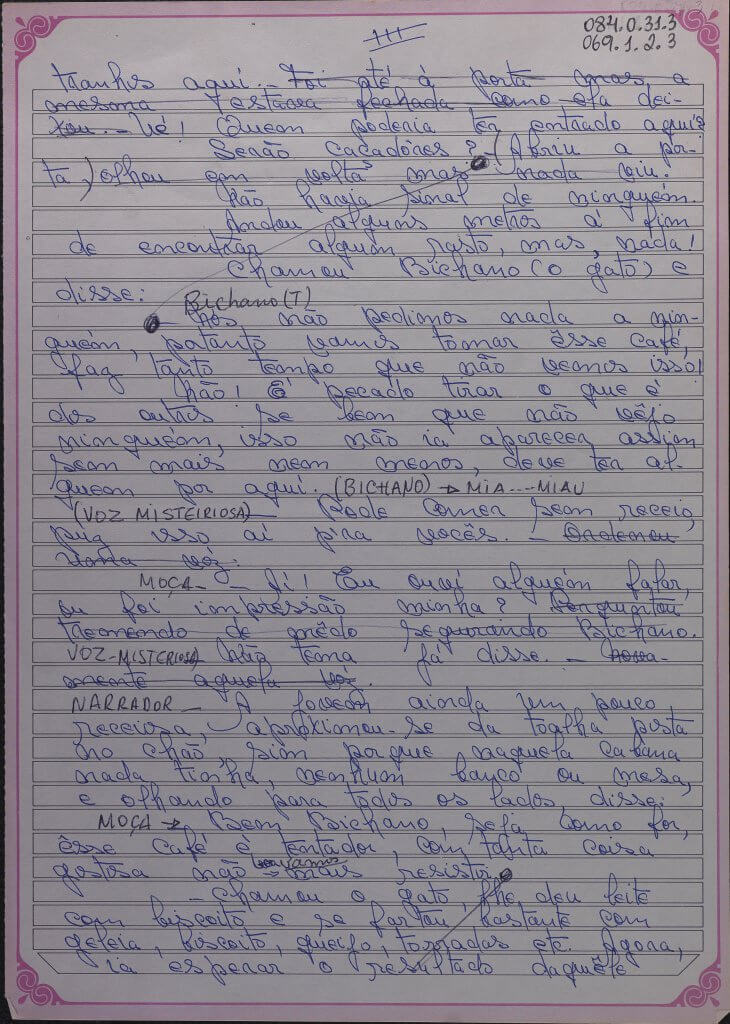 084.0.31.3
III
069.1.2.3
tranhs aqui. - Foi até á porta mas a
mesma estava fechada como ela dei-
xou. - Ué! Quem poderia ter entrado aqui?
Serão caçadôres? - (Abriu a por-
ta,) olhou em volta mas nada viu.
Não havia sinal de ninguém.
Andou alguns metros á fim
de encontrar algum rasto, mas, nada!
Chamou Bichano (o gato) e
disse:
Bichano (T)
- Nós não pedimos nada a nin-
guém, patanto vamos tomar êsse café,
faz tanto tempo que não vemos isso!
Não! É pecado tirar o que é
dos outros se bem que não vêjo
ninguém, isso não ia aparecer assim
sem mais nem menos, deve ter al-
guem por aqui. (BICHANO) → MIA...-MIAU
(VOZ MISTEIRIOSA) - Pode comer sem receio,
puz isso aí p'ra vocês. - Ordenou
uma vóz.
MOÇA - - Ai! Eu ouvi alguém falar,
ou foi impressão minha? Perguntou
tremendo de mêdo segurando Bichano.
VOZ-MISTERIOSA Não tema já disse. - nova-
mente aquela vóz.
NARRADOR - A jovem ainda um pouco
receiosa, aproximou-se da toalha posta
no chão, sim porque naquela cabana
nada tinha, nenhum banco ou mesa,
e olhando para todos os lados, disse:
MOÇA → Bem Bichano, seja como for,
êsse café é tentador, com tanta coisa
gostosa não vamos mais resistir.
- Chamou o gato, lhe deu leite
com biscoito e se fartou bastante com
geleia, biscoito, queijo, torradas etc. Agora,
ia esperar o resultado daquêle